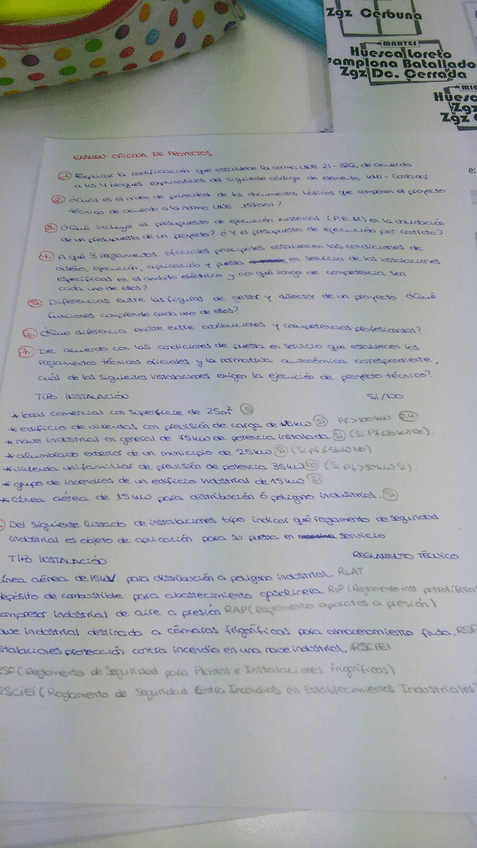 Zgz Cerbuna
MARTES
Huesca Loreto
Pamplona Batallado
Zgz Dc. Cerrada
Huesc
Zgz
Zg
EXAMEN OFICINA DE PROYECTOS
1. Explicar la codificación que establece la norma UNE 21-326, de acuerdo
a los 4 bloques del siguiente código de elemento
2. ¿Cuál es el orden de prioridad de los documentos básicos que componen el proyecto
técnico de acuerdo a la norma UNE 157001?
3. ¿Qué incluye el presupuesto de ejecución material (P.E.M) en la
de un presupuesto de un proyecto? ¿Y el presupuesto de ejecución por contrata?
4. ¿A qué 3 Reglamentos oficiales principales establecen las condiciones de
diseño, ejecución, aplicación y puesta en servicio de las instalaciones
específicas en el ámbito eléctrico y con qué rango de competencia son
cada uno de ellos?
5. Diferencias entre las figuras de gestor y director de un proyecto. ¿Qué
funciones comprende cada uno de ellos?
6. ¿Qué diferencia existe entre atribuciones y competencias profesionales?
7. De acuerdo con las condiciones de puesta en servicio que establecen los
reglamentos técnicos oficiales y la normativa autonómica correspondiente,
cuál de las siguientes instalaciones exigen la ejecución de proyecto técnico?
TIPO INSTALACIÓN SI/NO
* local comercial con superficie de 25m² Si
* edificio de viviendas con previsión de carga de Si Pf>100kW
* nave industrial en general de 75kW de potencia instalada Si
* alumbrado exterior de un municipio de 25kW Si
* vivienda unifamiliar de previsión de potencia 35kW (Si Pf>50kW Si).
* grupo de incendios de un edificio industrial de 15kW Si
* línea aérea de 15kV para distribución a polígono industrial. Si
Del siguiente listado de instalaciones tipo indicar qué reglamento de seguridad
industrial es objeto de aplicación para su puesta en servicio
TIPO INSTALACIÓN REGLAMENTO TÉCNICO
línea aérea de 15kV para distribución a polígono industrial. RLAT
depósito de combustible para abastecimiento gasolinera RIP (Reglamento inst petrolífera
compresor industrial de aire a presión RAP (Reglamento aparatos a presión)
nave industrial destinada a cámaras frigoríficas para almacenamiento fruta. RSF
instalaciones protección contra incendio en una nave industrial. RSCIEI
RSF (Reglamento de Seguridad para Plantas e Instalaciones Frigoríficas)
RSCIEI (Reglamento de Seguridad Contra Incendios en Establecimientos Industriales)